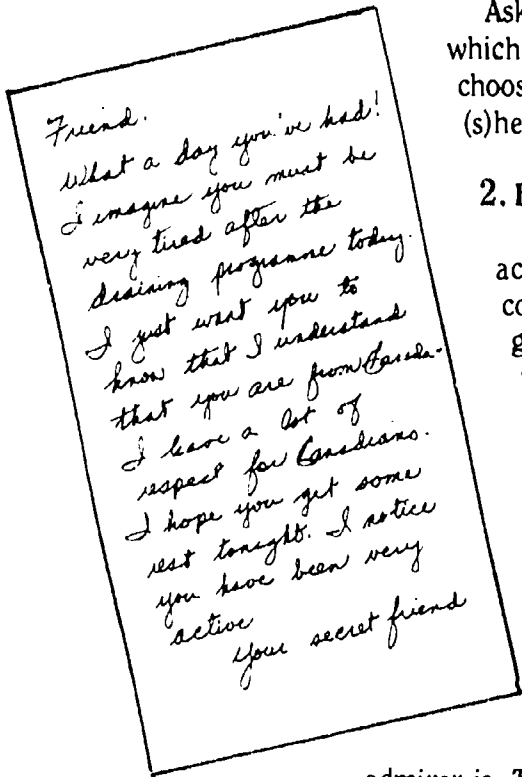 Ask
which
choos
(s)he
2.
ac
co
g
Friend.
What a day you've had!
I imagine you must be
very tired after the
draining programme today.
I just want you to
know that I understand
that you are from Canada.
I have a lot of
respect for Canadians.
I hope you get some
rest tonight. I notice
you have been very
active
Your secret friend
admirer is. T